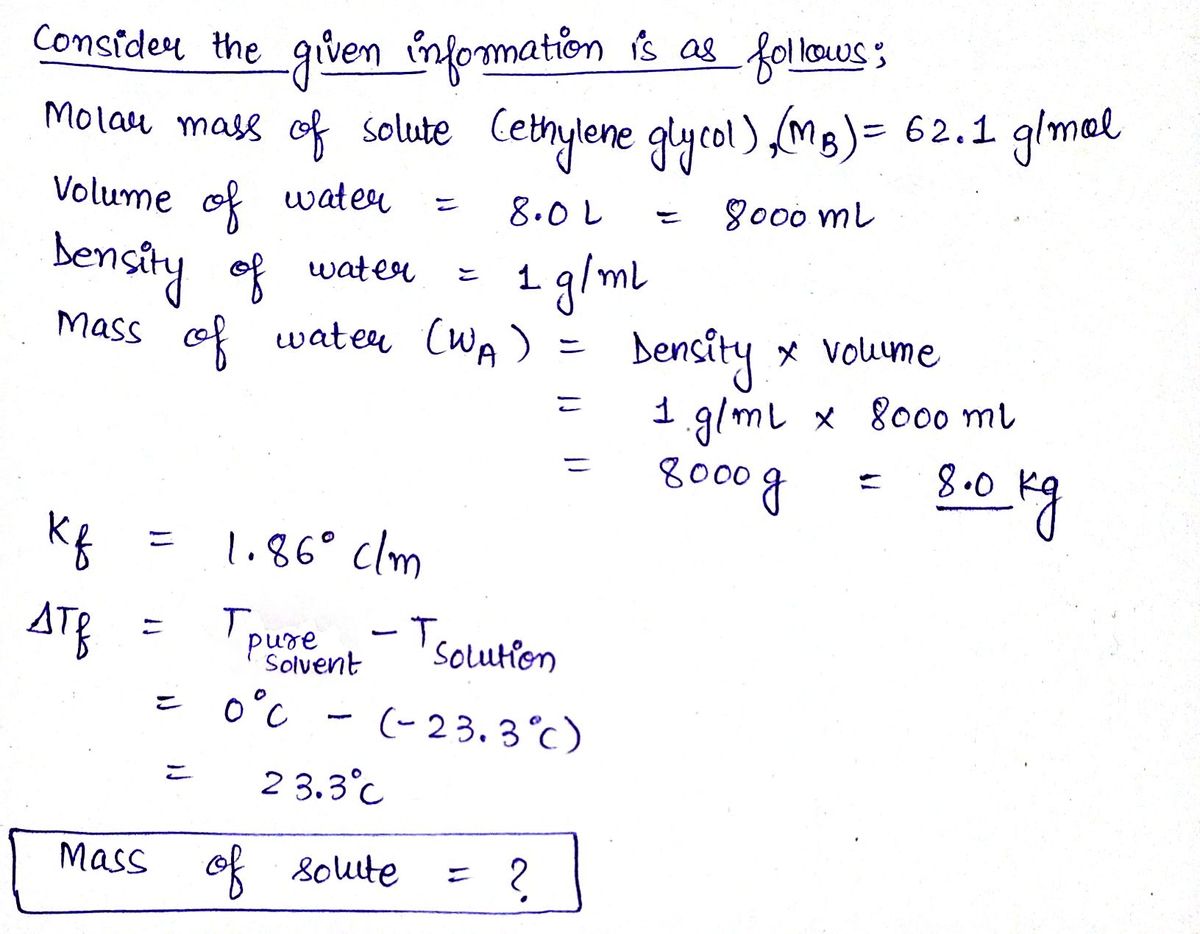 Consider the given information is as follows;
Molar mass of solute (ethylene glycol), (MB) = 62.1 g/mol
Volume of water = 8.0 L = 8000 mL
Density of water = 1 g/mL
Mass of water (WA) = Density × volume
= 1 g/mL × 8000 mL
= 8000 g = 8.0 Kg
Kf = 1.86° C/m
ΔTf = Tpure solvent - Tsolution
= 0°C - (-23.3°C)
= 23.3°C
Mass of solute = ?